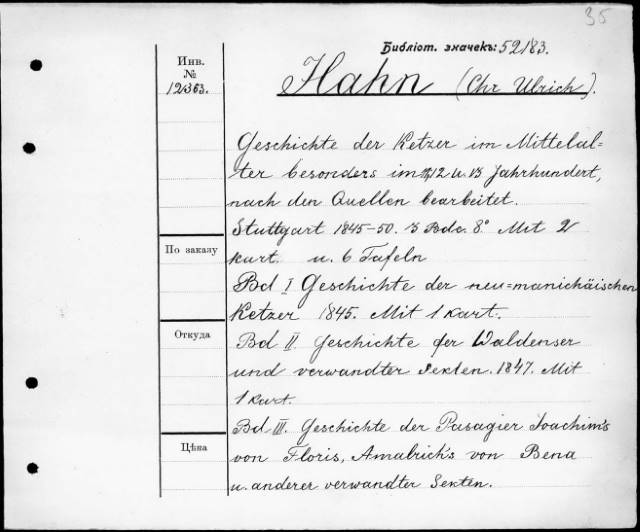 35
Библіот. значекъ: 52/83.
Инв.
№
12363.
Hahn (Chr Ulrich).
Geschichte der Ketzer im Mittelal=
ter besonders im 12 u. 13 Jahrhundert,
nach den Quellen bearbeitet.
Stuttgart 1845-50. 3 Bde. 8° Mit 2
kart. u. 6 Tafeln
По заказу
Bd I Geschichte der neu=manichäischen
Ketzer 1845. Mit 1 kart.
Откуда
Bd II. Geschichte der Waldenser
und verwandter Sekten. 1847. Mit
1 kart.
Bd III. Geschichte der Pasagier Joachim's
Цѣна
von Floris, Amalrich's von Bena
u. anderer verwandter Sekten.